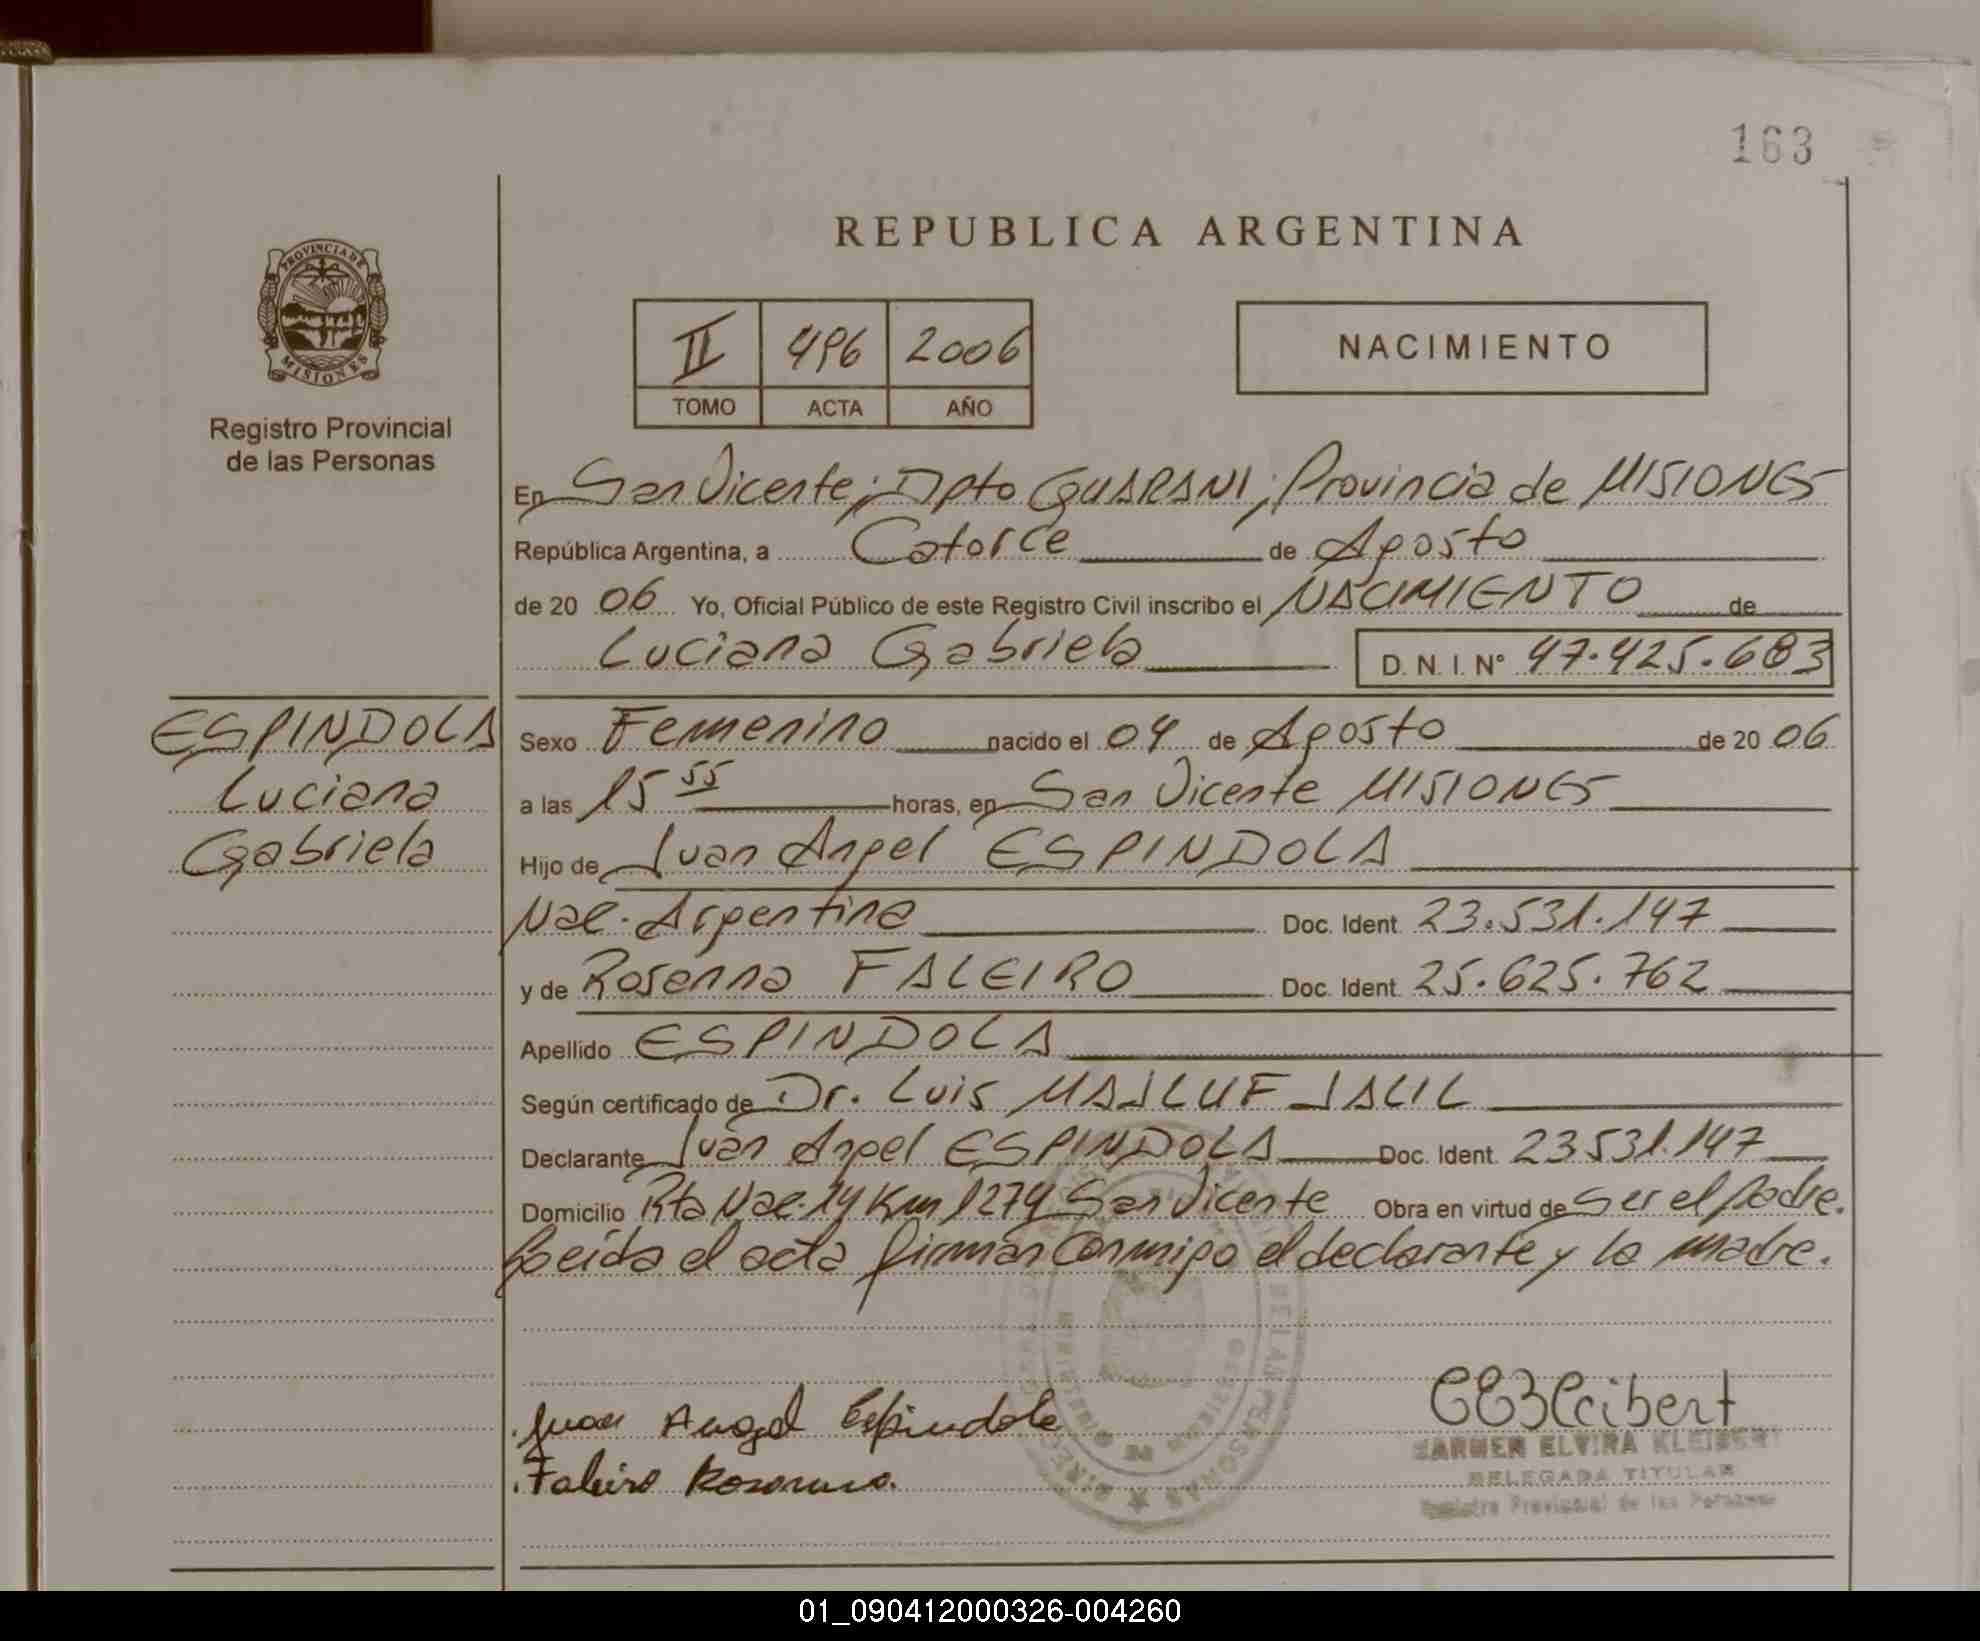 163
REPUBLICA ARGENTINA
PROVINCIA DE MISIONES
Registro Provincial
de las Personas
II 496 2006
TOMO ACTA AÑO
NACIMIENTO
En San Vicente; Dpto GUARANI; Provincia de MISIONES
República Argentina, a Catorce de Agosto
de 20 06 Yo, Oficial Público de este Registro Civil inscribo el NACIMIENTO de
Luciana Gabriela D. N. I. N° 47.425.683
ESPINDOLA
Luciana
Gabriela
Sexo Femenino nacido el 04 de Agosto de 20 06
a las 15 55 horas, en San Vicente MISIONES
Hijo de Juan Angel ESPINDOLA
Nac. Argentina Doc. Ident. 23.531.147
y de Rosanna FALEIRO Doc. Ident. 25.625.762
Apellido ESPINDOLA
Según certificado de Dr. Luis MAJLUF JALIL
Declarante Juan Angel ESPINDOLA Doc. Ident. 23.531.147
Domicilio Rta Nac. 14 Km 1274 San Vicente Obra en virtud de Ser el padre.
Leída el acta firman conmigo el declarante y la madre.
Juan Angel Espindola
Faleiro Rosanna.
CEKleibert
CARMEN ELVIRA KLEIBERT
DELEGADA TITULAR
Registro Provincial de las Personas
01_090412000326-004260